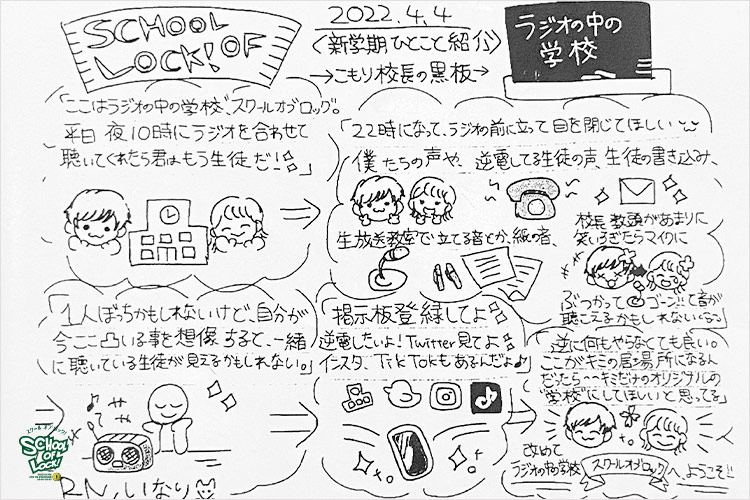 SCHOOL
OF
LOCK!
2022.4.4
〈新学期ひとこと紹介〉
→こもり校長の黒板→
ラジオの中の
学校
「ここはラジオの中の学校、スクールオブロック。
平日夜10時にラジオを合わせて
聴いてくれたら君はもう生徒だ!」
「22時になって、ラジオの前に立って目を閉じてほしい
僕たちの声や、逆電してる生徒の声、生徒の書き込み、
生放送教室で立てる音とか、紙の音、
校長教頭があまりに
笑いすぎたらマイクに
ぶつかってゴーン!!と音が
聴こえるかもしれない(笑)」
「1人ぼっちかもしれないけど、自分が
今ここ凸いる事を想像すると、一緒
に聴いている生徒が見えるかもしれない。」
掲示板登録してよ
逆電したいよ!Twitter見てよ
インスタ、TikTokもあるんだよ♪」
「逆に何もやらなくても良い。
ここがキミの居場所になるん
だったら…キミだけのオリジナルの
"学校"にしてほしいと思ってる」
改めて
ラジオの中の学校
スクールオブロック
へようこそ!!
RN.いなり
スクール オブ ロック!
SCHOOL
OF
LOCK!